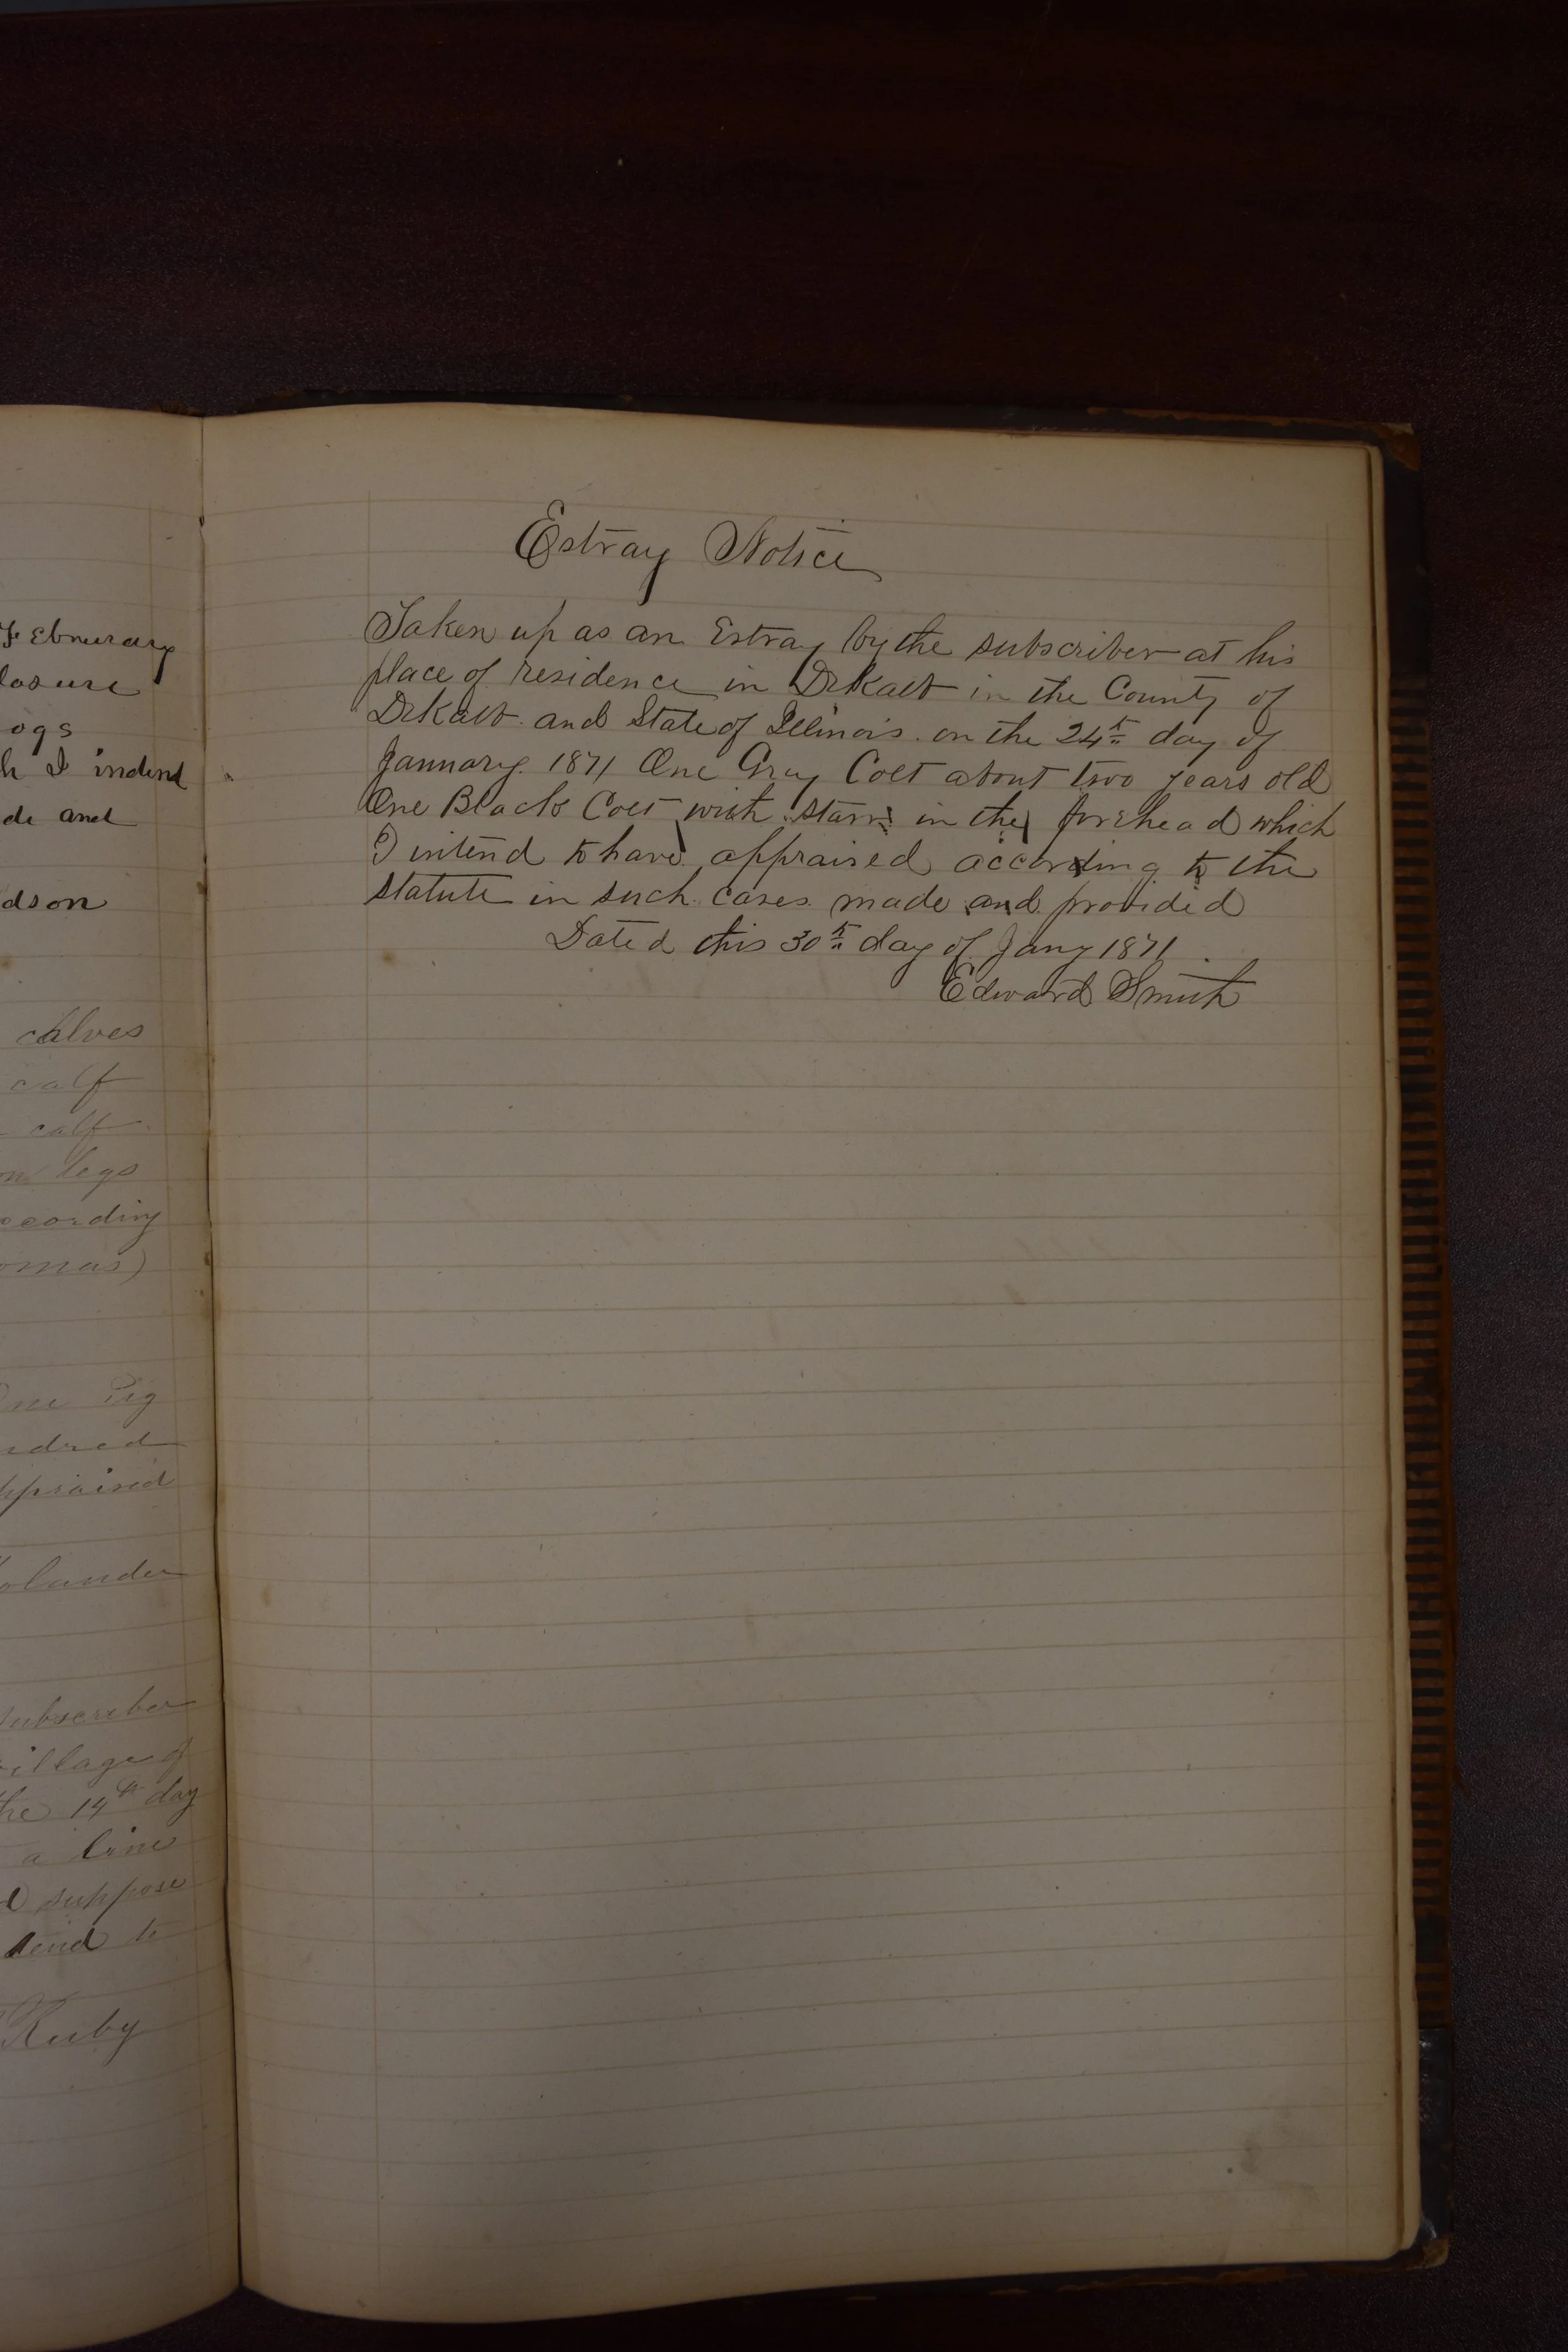 Febnurary
losure
ogs
h I indend
de and
dson
calves
calf
calf
on legs
ccording
omas)
One Pig
ndred
appraised
olander
subscriber
village of
the 14th day
a line
I suppose
tend to
Ruby
Estray Notice
Taken up as an Estray by the subscriber at his
place of residence in DeKalb in the County of
DeKalb and State of Illinois on the 24th day of
January 1871 One Gray Colt about two years old
One Black Colt with starr in the forehead which
I intend to have appraised according to the
statute in such cases made and provided
Dated this 30th day of Jany 1871
Edward Smith